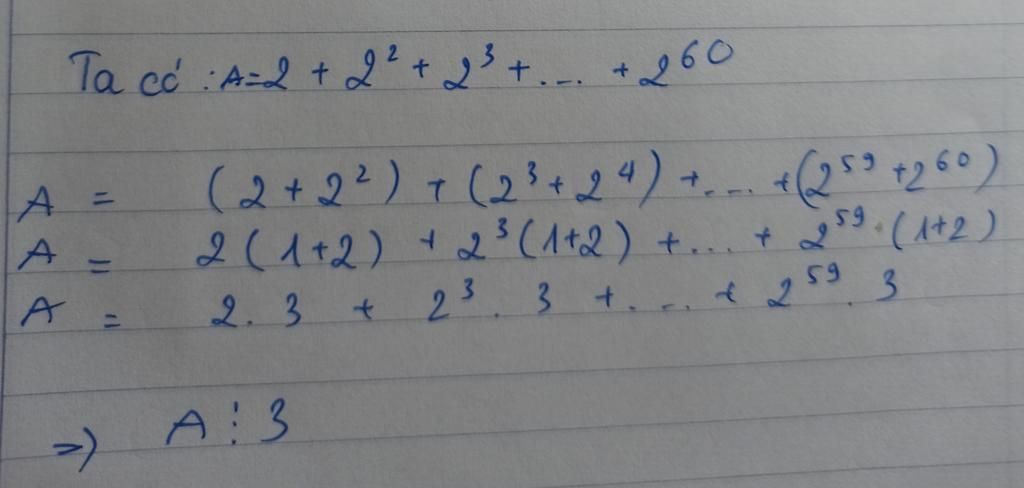 Ta có : A = 2 + 2² + 2³ + ... + 2⁶⁰
A = (2 + 2²) + (2³ + 2⁴) + ... + (2⁵⁹ + 2⁶⁰)
A = 2(1+2) + 2³(1+2) + ... + 2⁵⁹.(1+2)
A = 2.3 + 2³.3 + ... + 2⁵⁹.3
=) A ⋮ 3